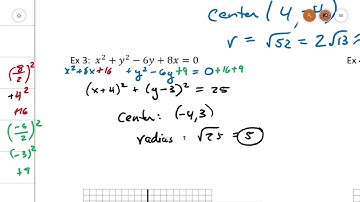 center (4, -4)
r = √52 = 2√13 ≈
Ex 3: x² + y² − 6y + 8x = 0
x² + 8x + 16 + y² − 6y + 9 = 0 + 16 + 9
(x + 4)² + (y − 3)² = 25
center: (-4, 3)
radius = √25 = 5
(8/2)²
+4²
+16
(-6/2)²
(-3)²
+9
Ex